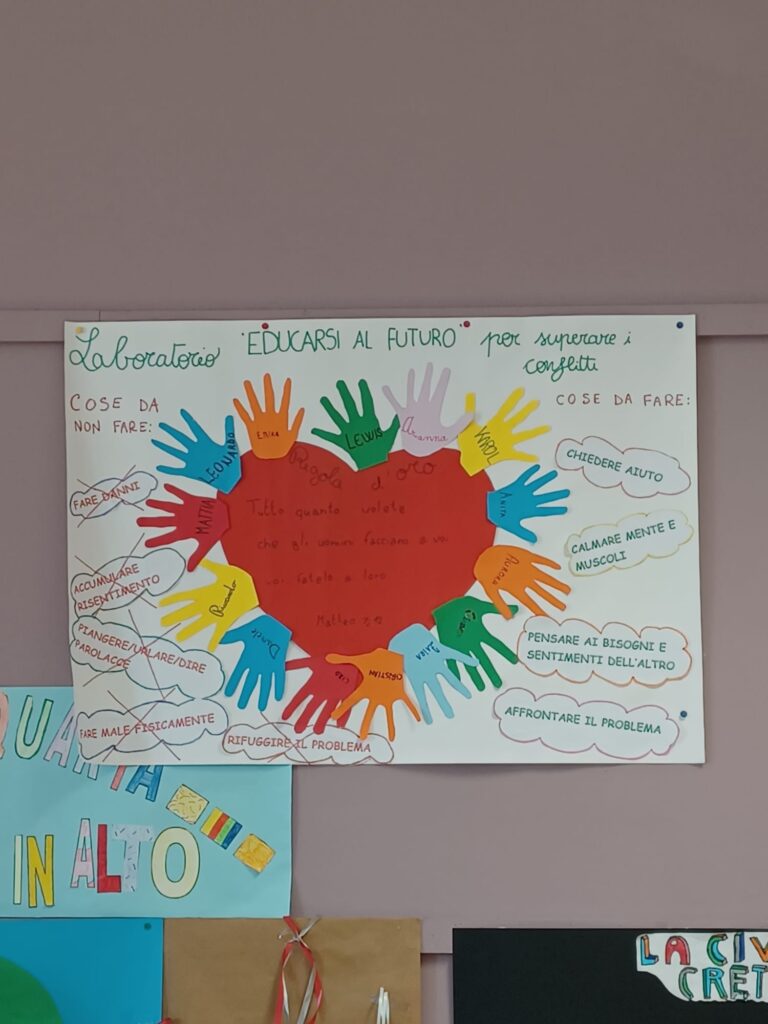 Laboratorio "EDUCARSI AL FUTURO" per superare i
conflitti
COSE DA
NON FARE:
COSE DA FARE:
LEONARDO
ERIKA
LEWIS
Arianna
KAROL
MATTIA
ANITA
Riccardo
AURORA
Daniele
CIRO
CHRISTIAN
Regola d'oro
Tutto quanto volete
che gli uomini facciano a voi
voi fatelo a loro
Matteo 7,12
FARE DANNI
ACCUMULARE
RISENTIMENTO
PIANGERE/URLARE/DIRE
PAROLACCE
FARE MALE FISICAMENTE
RIFUGGIRE IL PROBLEMA
CHIEDERE AIUTO
CALMARE MENTE E
MUSCOLI
PENSARE AI BISOGNI E
SENTIMENTI DELL'ALTRO
AFFRONTARE IL PROBLEMA
QUARTA
IN ALTO
LA CIV
CRET